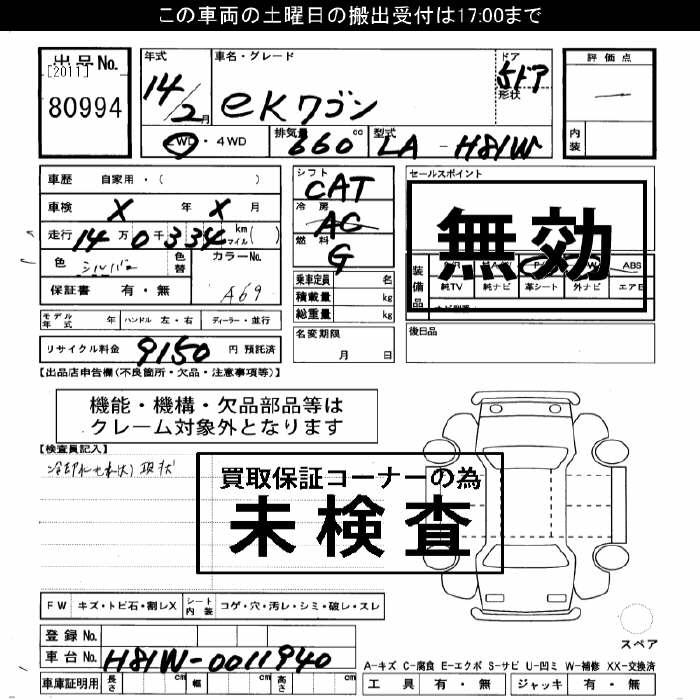 この車両の土曜日の搬出受付は17:00まで
出品No.
[2011]
80994
年式
14/2月
車名・グレード
eKワゴン
ドア
形状
5ドア
評価点
内装
2WD・4WD
排気量
660cc
型式
LA - H81W
車歴 自家用・( )
車検 X 年 X 月
走行 14万0千334 km マイル( )
色 シルバー
色替
カラーNo.
A69
保証書 有・無
シフト
CAT
冷房
AC
燃料
G
乗車定員 名
積載量 kg
総重量 kg
セールスポイント
無効
装備品
ABS
純TV 純ナビ 革シート 外ナビ エアB
モデル年式 年 ハンドル 左・右 ディーラー・並行
リサイクル料金 9150 円 預託済
名変期限
月 日
後日品
【出品店申告欄(不良箇所・欠品・注意事項等)】
機能・機構・欠品部品等は
クレーム対象外となります
【検査員記入】
買取保証コーナーの為
未検査
FW キズ・トビ石・割レX
シート内装 コゲ・穴・汚レ・シミ・破レ・スレ
登録No.
車台No. H81W-0011940
車庫証明用 長さ cm 幅 cm 高さ cm
スペア
A-キズ C-腐食 E-エクボ S-サビ U-凹ミ W-補修 XX-交換済
工具 有・無 ジャッキ 有・無